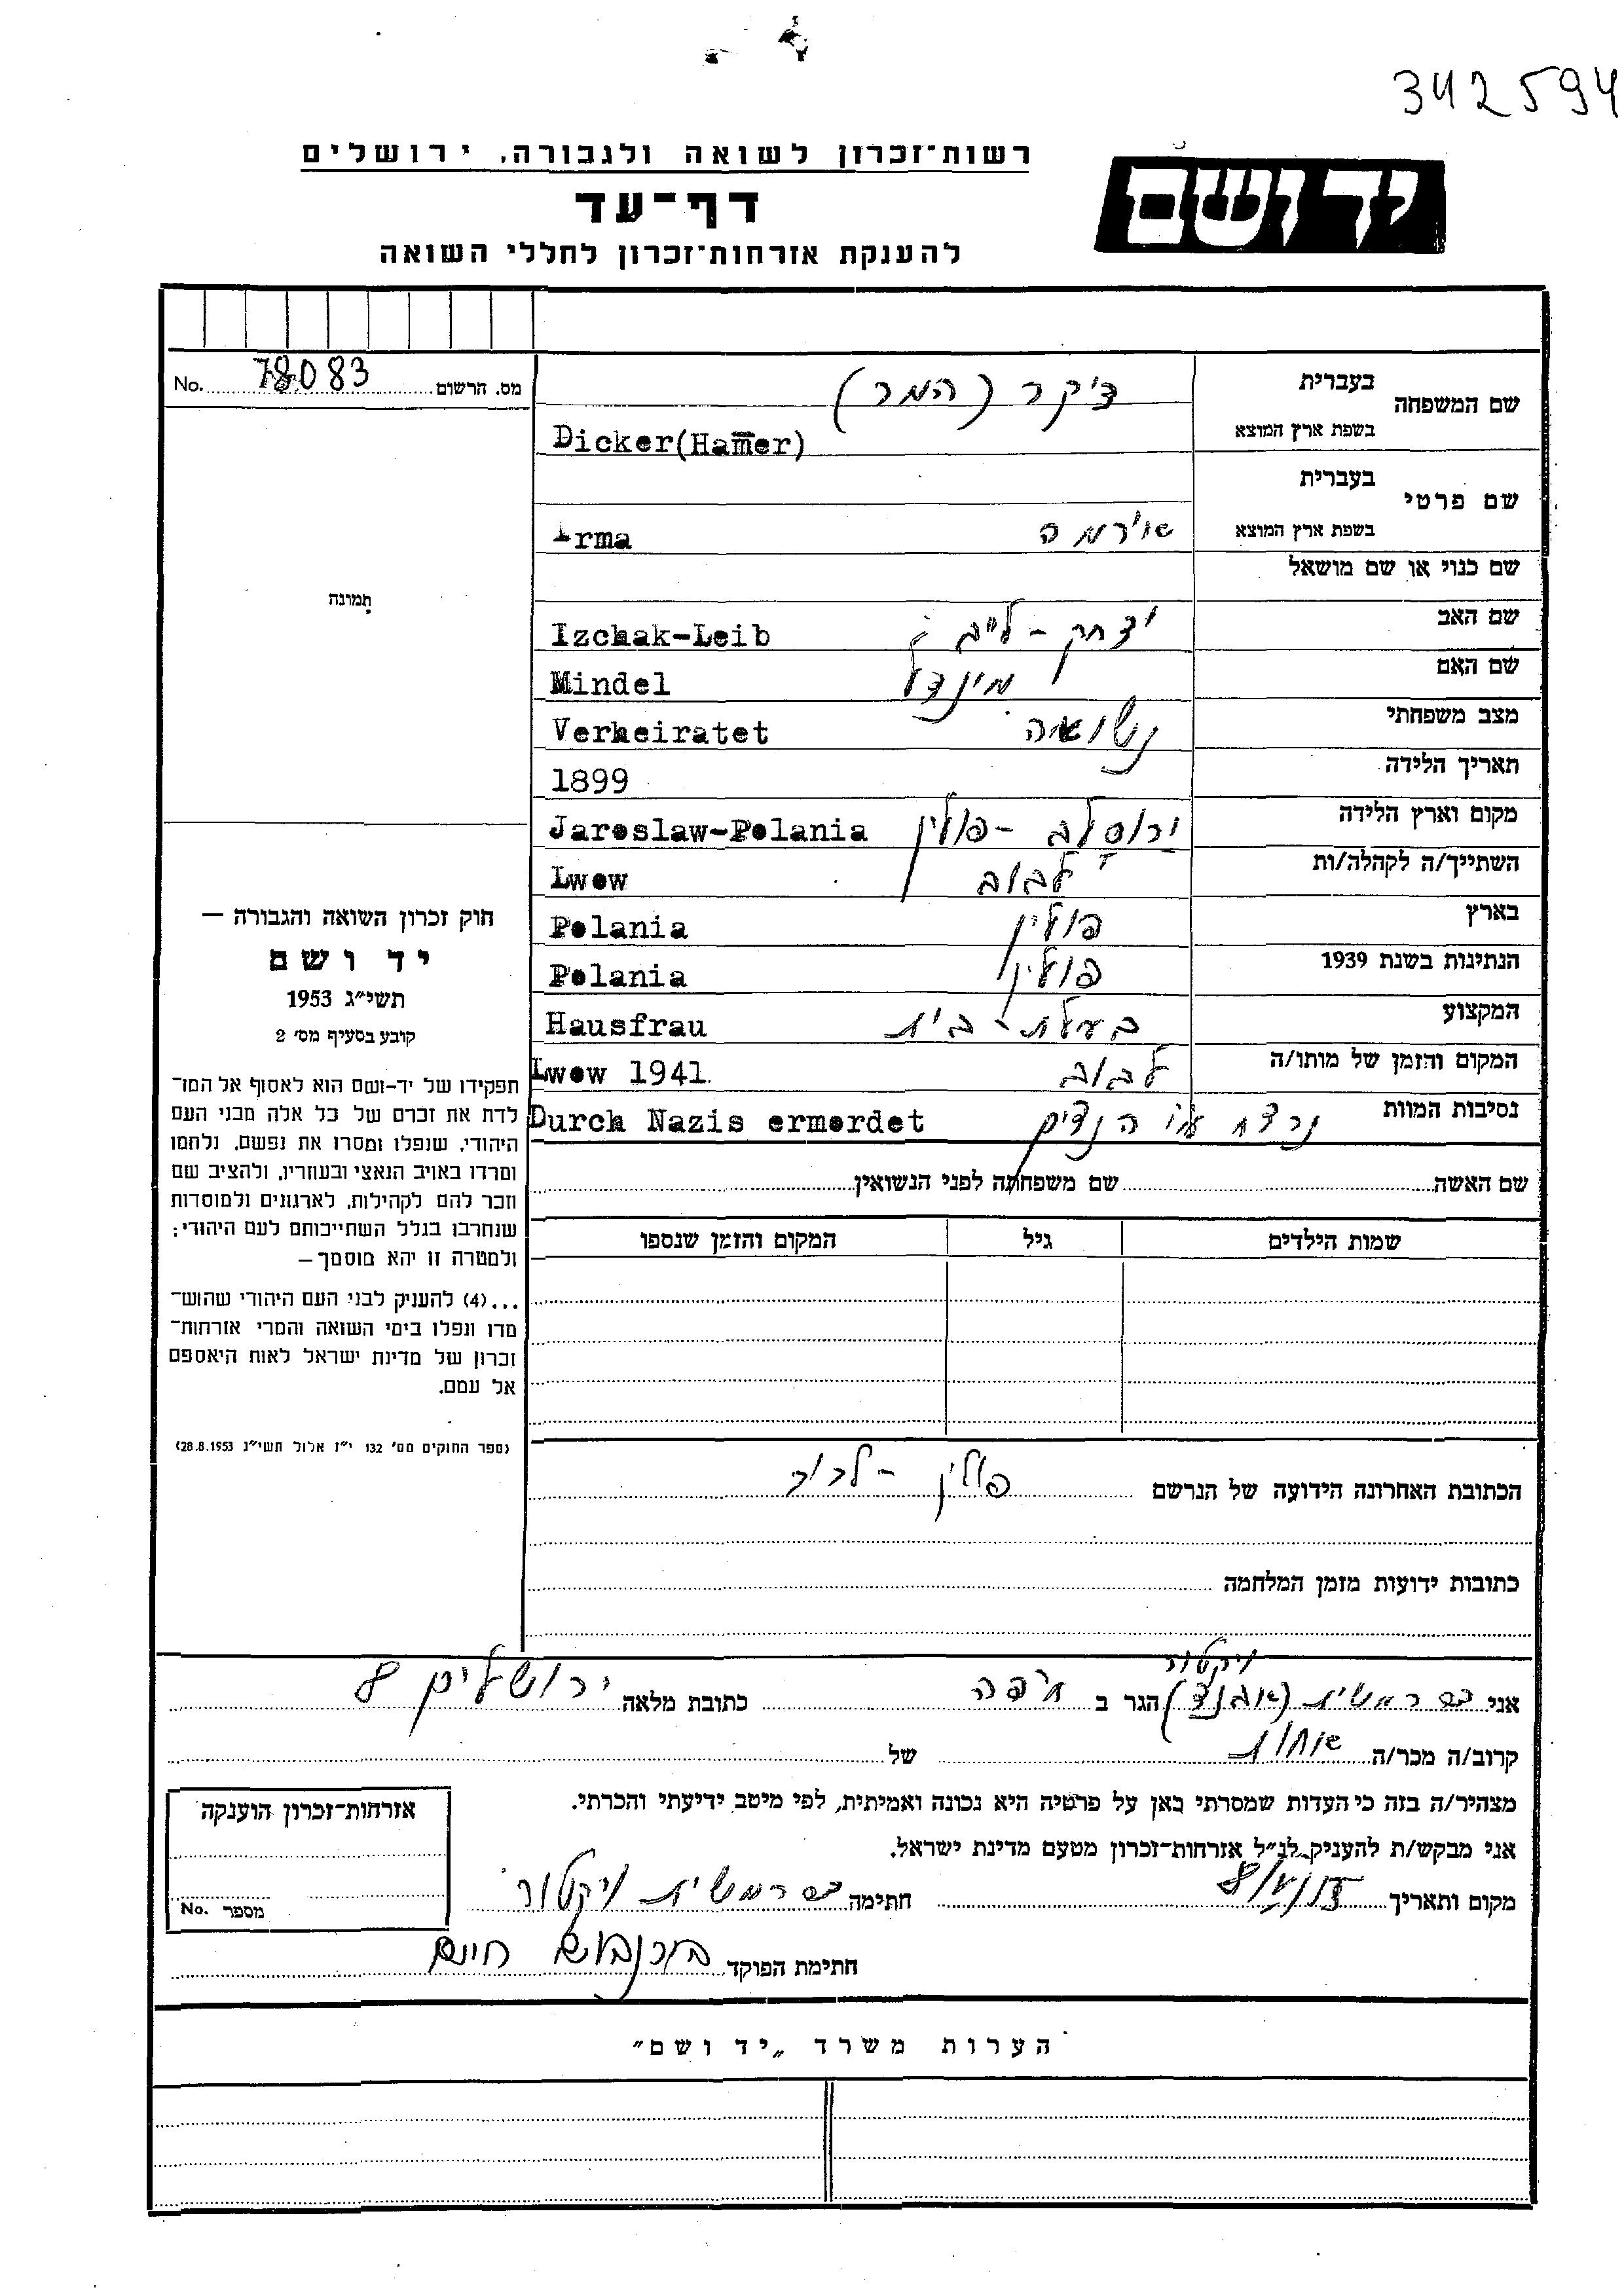 342594
יד ושם
רשות־זכרון לשואה ולגבורה, ירושלים
דף־עד
להענקת אזרחות־זכרון לחללי השואה
מס. הרשום 78083 No.
שם המשפחה
בעברית דיקר (המר)
בשפת ארץ המוצא Dicker(Hamer)
שם פרטי
בעברית
בשפת ארץ המוצא אירמה Irma
שם כנוי או שם מושאל
שם האב יצחק - לייב Izchak-Leib
שם האם מינדל Mindel
מצב משפחתי נשואה Verheiratet
תאריך הלידה 1899
מקום וארץ הלידה ירוסלב - פולין Jaroslaw-Polania
השתייך/ה לקהלה/ות לבוב Lwow
בארץ פולין Polania
הנתינות בשנת 1939 פולין Polania
המקצוע בעלת - בית Hausfrau
המקום והזמן של מותו/ה לבוב Lwow 1941.
נסיבות המוות נרצח ע"י הנצים Durch Nazis ermordet
שם האשה שם משפחתה לפני הנשואין
שמות הילדים גיל המקום והזמן שנספו
הכתובת האחרונה הידועה של הנרשם פולין - לבוב
כתובות ידועות מזמן המלחמה
תמונה
חוק זכרון השואה והגבורה —
יד ושם
תשי״ג 1953
קובע בסעיף מס׳ 2
תפקידו של יד-ושם הוא לאסוף אל המו־
לדת את זכרם של כל אלה מבני העם
היהודי, שנפלו ומסרו את נפשם, נלחמו
ומרדו באויב הנאצי ובעוזריו, ולהציב שם
וזכר להם לקהילות, לארגונים ולמוסדות
שנחרבו בגלל השתייכותם לעם היהודי;
ולמטרה זו יהא מוסמך —
...(4) להענין לבני העם היהודי שהוש־
מדו ונפלו בימי השואה והמרי אזרחות־
זכרון של מדינת ישראל לאות היאספם
אל עמם.
(ספר החוקים מס׳ 132 י״ז אלול תשי״ג 28.8.1953)
ויקטור
אני הגר ב חיפה כתובת מלאה ירושלים 8
קרוב/ה מכר/ה אחות של
מצהיר/ה בזה כי העדות שמסרתי כאן על פרטיה היא נכונה ואמיתית, לפי מיטב ידיעתי והכרתי.
אני מבקש/ת להעניק לנ״ל אזרחות־זכרון מטעם מדינת ישראל.
מקום ותאריך חתימה ויקטור
חתימת הפוקד חיים
אזרחות־זכרון הוענקה
מספר No.
הערות משרד „יד ושם״